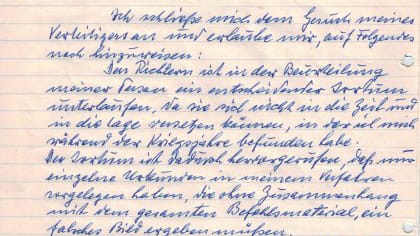 Ich schließe mich dem Gesuch meines
Verteidigers an und erlaube mir, auf Folgendes
noch hinzuweisen:
Den Richtern ist in der Beurteilung
meiner Person ein entscheidender Irrtum
unterlaufen, da sie sich nicht in die Zeit und
in die Lage versetzen können, in der ich mich
während der Kriegsjahre befunden habe.
Der Irrtum ist dadurch hervorgerufen, daß nur
einzelne Urkunden in meinem Verfahren
vorgelegen haben, die ohne Zusammenhang
mit dem gesamten Befehlsmaterial, ein
falsches Bild ergeben müßen.